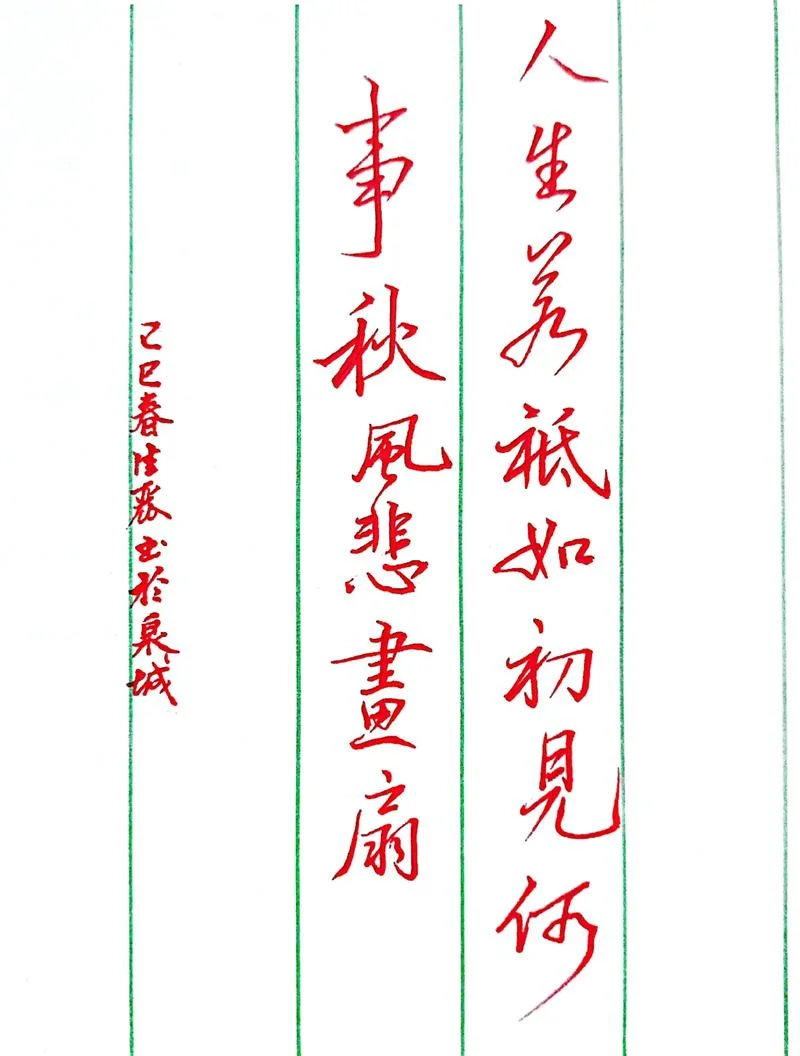 人生若祗如初見何
事秋風悲畫扇
己巳春佳书於泉城